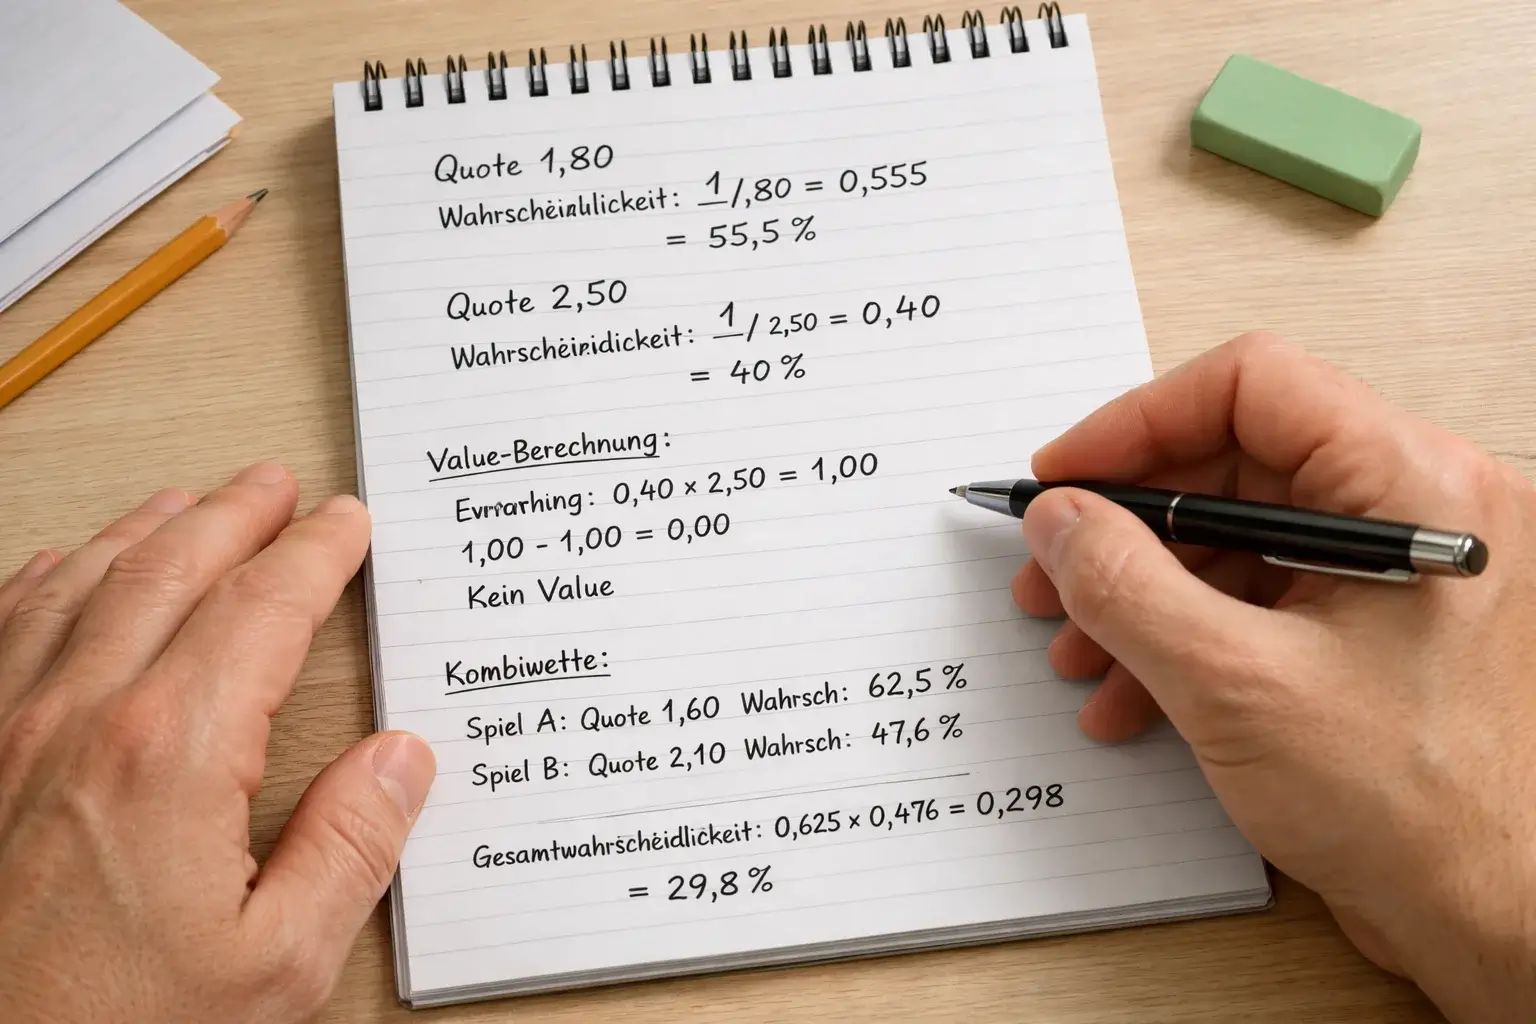 Quote 1,80
Wahrscheinhlickeit: 1/,80 = 0,555
= 55,5 %
Quote 2,50
Wahrscheiridickeit: 1/2,50 = 0,40
= 40 %
Value-Berechnung:
0,40 × 2,50 = 1,00
1,00 - 1,00 = 0,00
Kein Value
Kombiwette:
Spiel A: Quote 1,60 Wahrsch: 62,5 %
Spiel B: Quote 2,10 Wahrsch: 47,6 %
Gesamtwahrscheidlickeit: 0,625 × 0,476 = 0,298
= 29,8 %